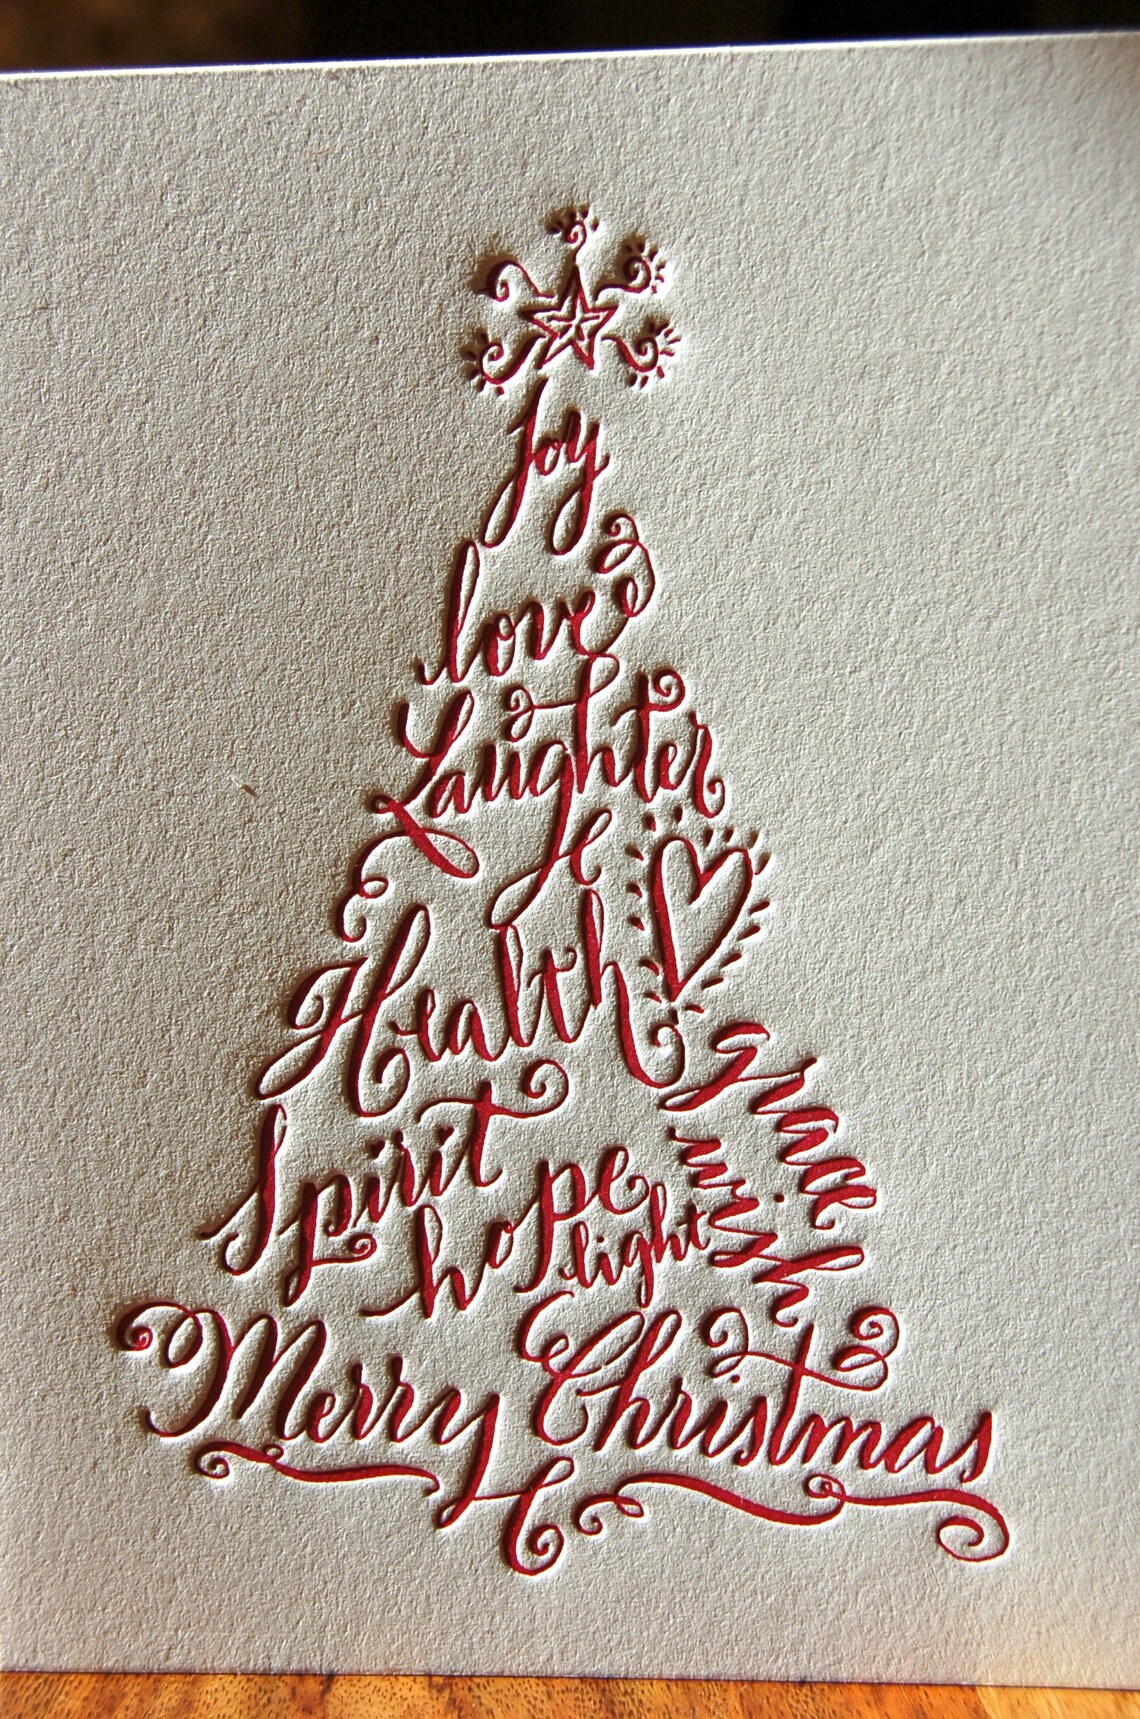 Joy
love
Laughter
Health
Spirit
grace
wish
hope
light
Merry Christmas